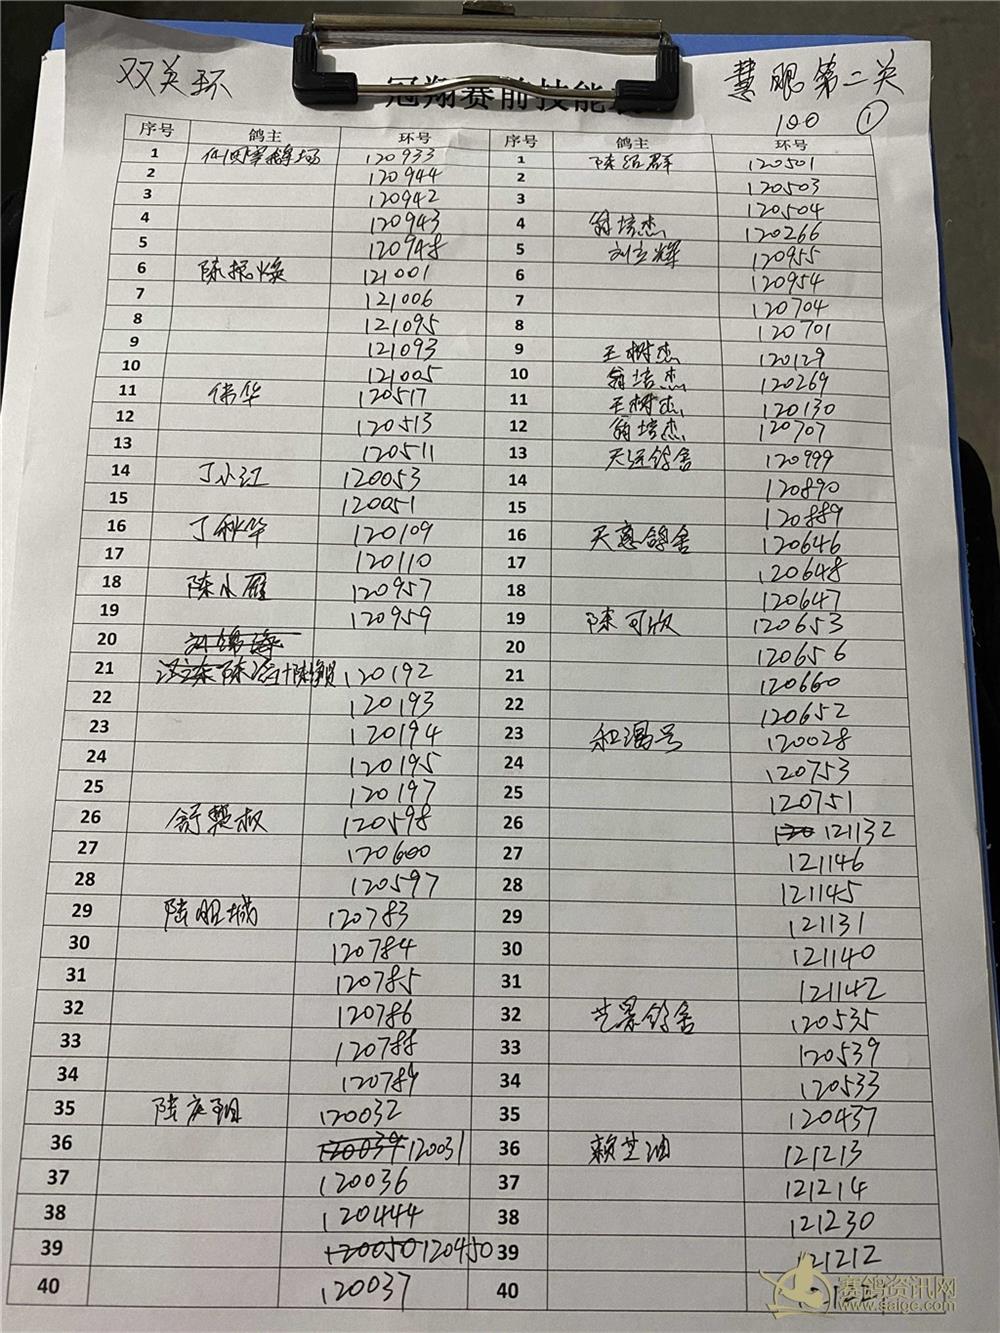 双关环
冠翔赛前技能
慧眼第二关
100 ①
序号 鸽主 环号 序号 鸽主 环号
1 120933 1 陈绍群 120501
2 120944 2 120503
3 120942 3 120504
4 120943 4 翁培杰 120266
5 120948 5 刘立辉 120955
6 陈振焕 121001 6 120954
7 121006 7 120704
8 121095 8 120701
9 121093 9 王树杰 120129
10 121005 10 翁培杰 120269
11 伟华 120517 11 王树杰 120130
12 120513 12 翁培杰 120707
13 120511 13 天运鸽舍 120999
14 丁小江 120053 14 120890
15 120051 15 120889
16 丁秋华 120109 16 天惠鸽舍 120646
17 120110 17 120648
18 陈小雁 120957 18 120647
19 120959 19 陈可欣 120653
20 20 120656
21 120192 21 120660
22 120193 22 120652
23 120194 23 和鸿号 120028
24 120195 24 120753
25 120197 25 120751
26 舒楚权 120598 26 120 121132
27 120600 27 121146
28 120597 28 121145
29 陆明城 120783 29 121131
30 120784 30 121140
31 120785 31 121142
32 120786 32 艺景鸽舍 120535
33 120788 33 120539
34 120789 34 120533
35 120032 35 120437
36 120039 120031 36 赖芝油 121213
37 120036 37 121214
38 120444 38 121230
39 120050 120450 39 121212
40 120037 40
赛鸽资讯网
www.saige.com